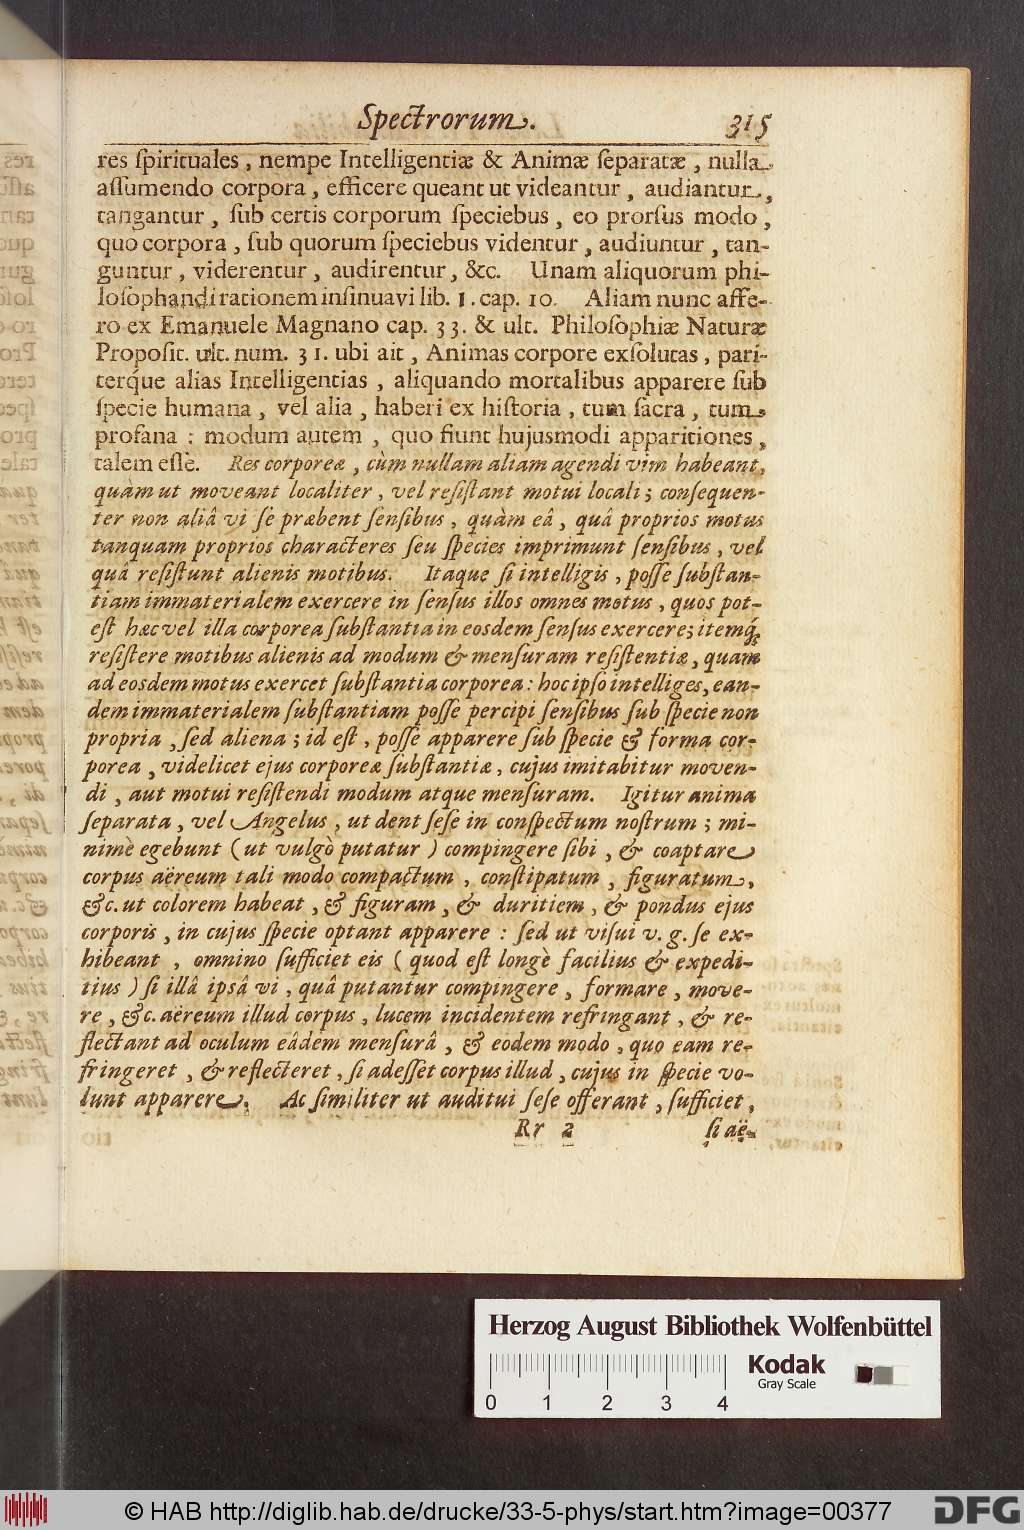 Spectrorum. 315
res ſpirituales, nempe Intelligentiæ & Animæ ſeparatæ, nulla
aſſumendo corpora, efficere queant ut videantur, audiantur,
tangantur, ſub certis corporum ſpeciebus, eo prorſus modo,
quo corpora, ſub quorum ſpeciebus videntur, audiuntur, tan-
guntur, viderentur, audirentur, &c. Unam aliquorum phi-
loſophandi rationem inſinuavi lib. 1. cap. 10. Aliam nunc affe-
ro ex Emanuele Magnano cap. 33. & ult. Philoſophiæ Naturæ
Propoſit. ult. num. 31. ubi ait, Animas corpore exſolutas, pari-
terq́ue alias Intelligentias, aliquando mortalibus apparere ſub
ſpecie humana, vel alia, haberi ex hiſtoria, tum ſacra, tum
profana: modum autem, quo fiunt hujusmodi apparitiones,
talem eſſe. Res corporeæ, cùm nullam aliam agendi vim habeant,
quàm ut moveant localiter, vel reſiſtant motui locali; conſequen-
ter non aliâ vi ſe præbent ſenſibus, quàm eâ, quâ proprios motus
tanquam proprios characteres ſeu ſpecies imprimunt ſenſibus, vel
quâ reſiſtunt alienis motibus. Itaque ſi intelligis, poſſe ſubſtan-
tiam immaterialem exercere in ſenſus illos omnes motus, quos pot-
eſt hæc vel illa corporea ſubſtantia in eosdem ſenſus exercere; itemq́;
reſiſtere motibus alienis ad modum & menſuram reſiſtentiæ, quam
ad eosdem motus exercet ſubſtantia corporea: hoc ipſo intelliges, ean-
dem immaterialem ſubſtantiam poſſe percipi ſenſibus ſub ſpecie non
propria, ſed aliena; id eſt, poſſe apparere ſub ſpecie & forma cor-
porea, videlicet ejus corporeæ ſubſtantiæ, cujus imitabitur moven-
di, aut motui reſiſtendi modum atque menſuram. Igitur anima
ſeparata, vel Angelus, ut dent ſeſe in conſpectum noſtrum; mi-
nimè egebunt (ut vulgò putatur) compingere ſibi, & coaptare
corpus aëreum tali modo compactum, conſtipatum, figuratum,
&c. ut colorem habeat, & figuram, & duritiem, & pondus ejus
corporis, in cujus ſpecie optant apparere: ſed ut viſui v. g. ſe ex-
hibeant, omnino ſufficiet eis (quod eſt longè facilius & expedi-
tius) ſi illâ ipsâ vi, quâ putantur compingere, formare, move-
re, &c. aëreum illud corpus, lucem incidentem refringant, & re-
flectant ad oculum eâdem menſurâ, & eodem modo, quo eam re-
fringeret, & reflecteret, ſi adeſſet corpus illud, cujus in ſpecie vo-
lunt apparere. Ac ſimiliter ut auditui ſeſe offerant, ſufficiet,
Rr 2 ſi aë-
Herzog August Bibliothek Wolfenbüttel
Kodak
Gray Scale
0 1 2 3 4
© HAB http://diglib.hab.de/drucke/33-5-phys/start.htm?image=00377
DFG